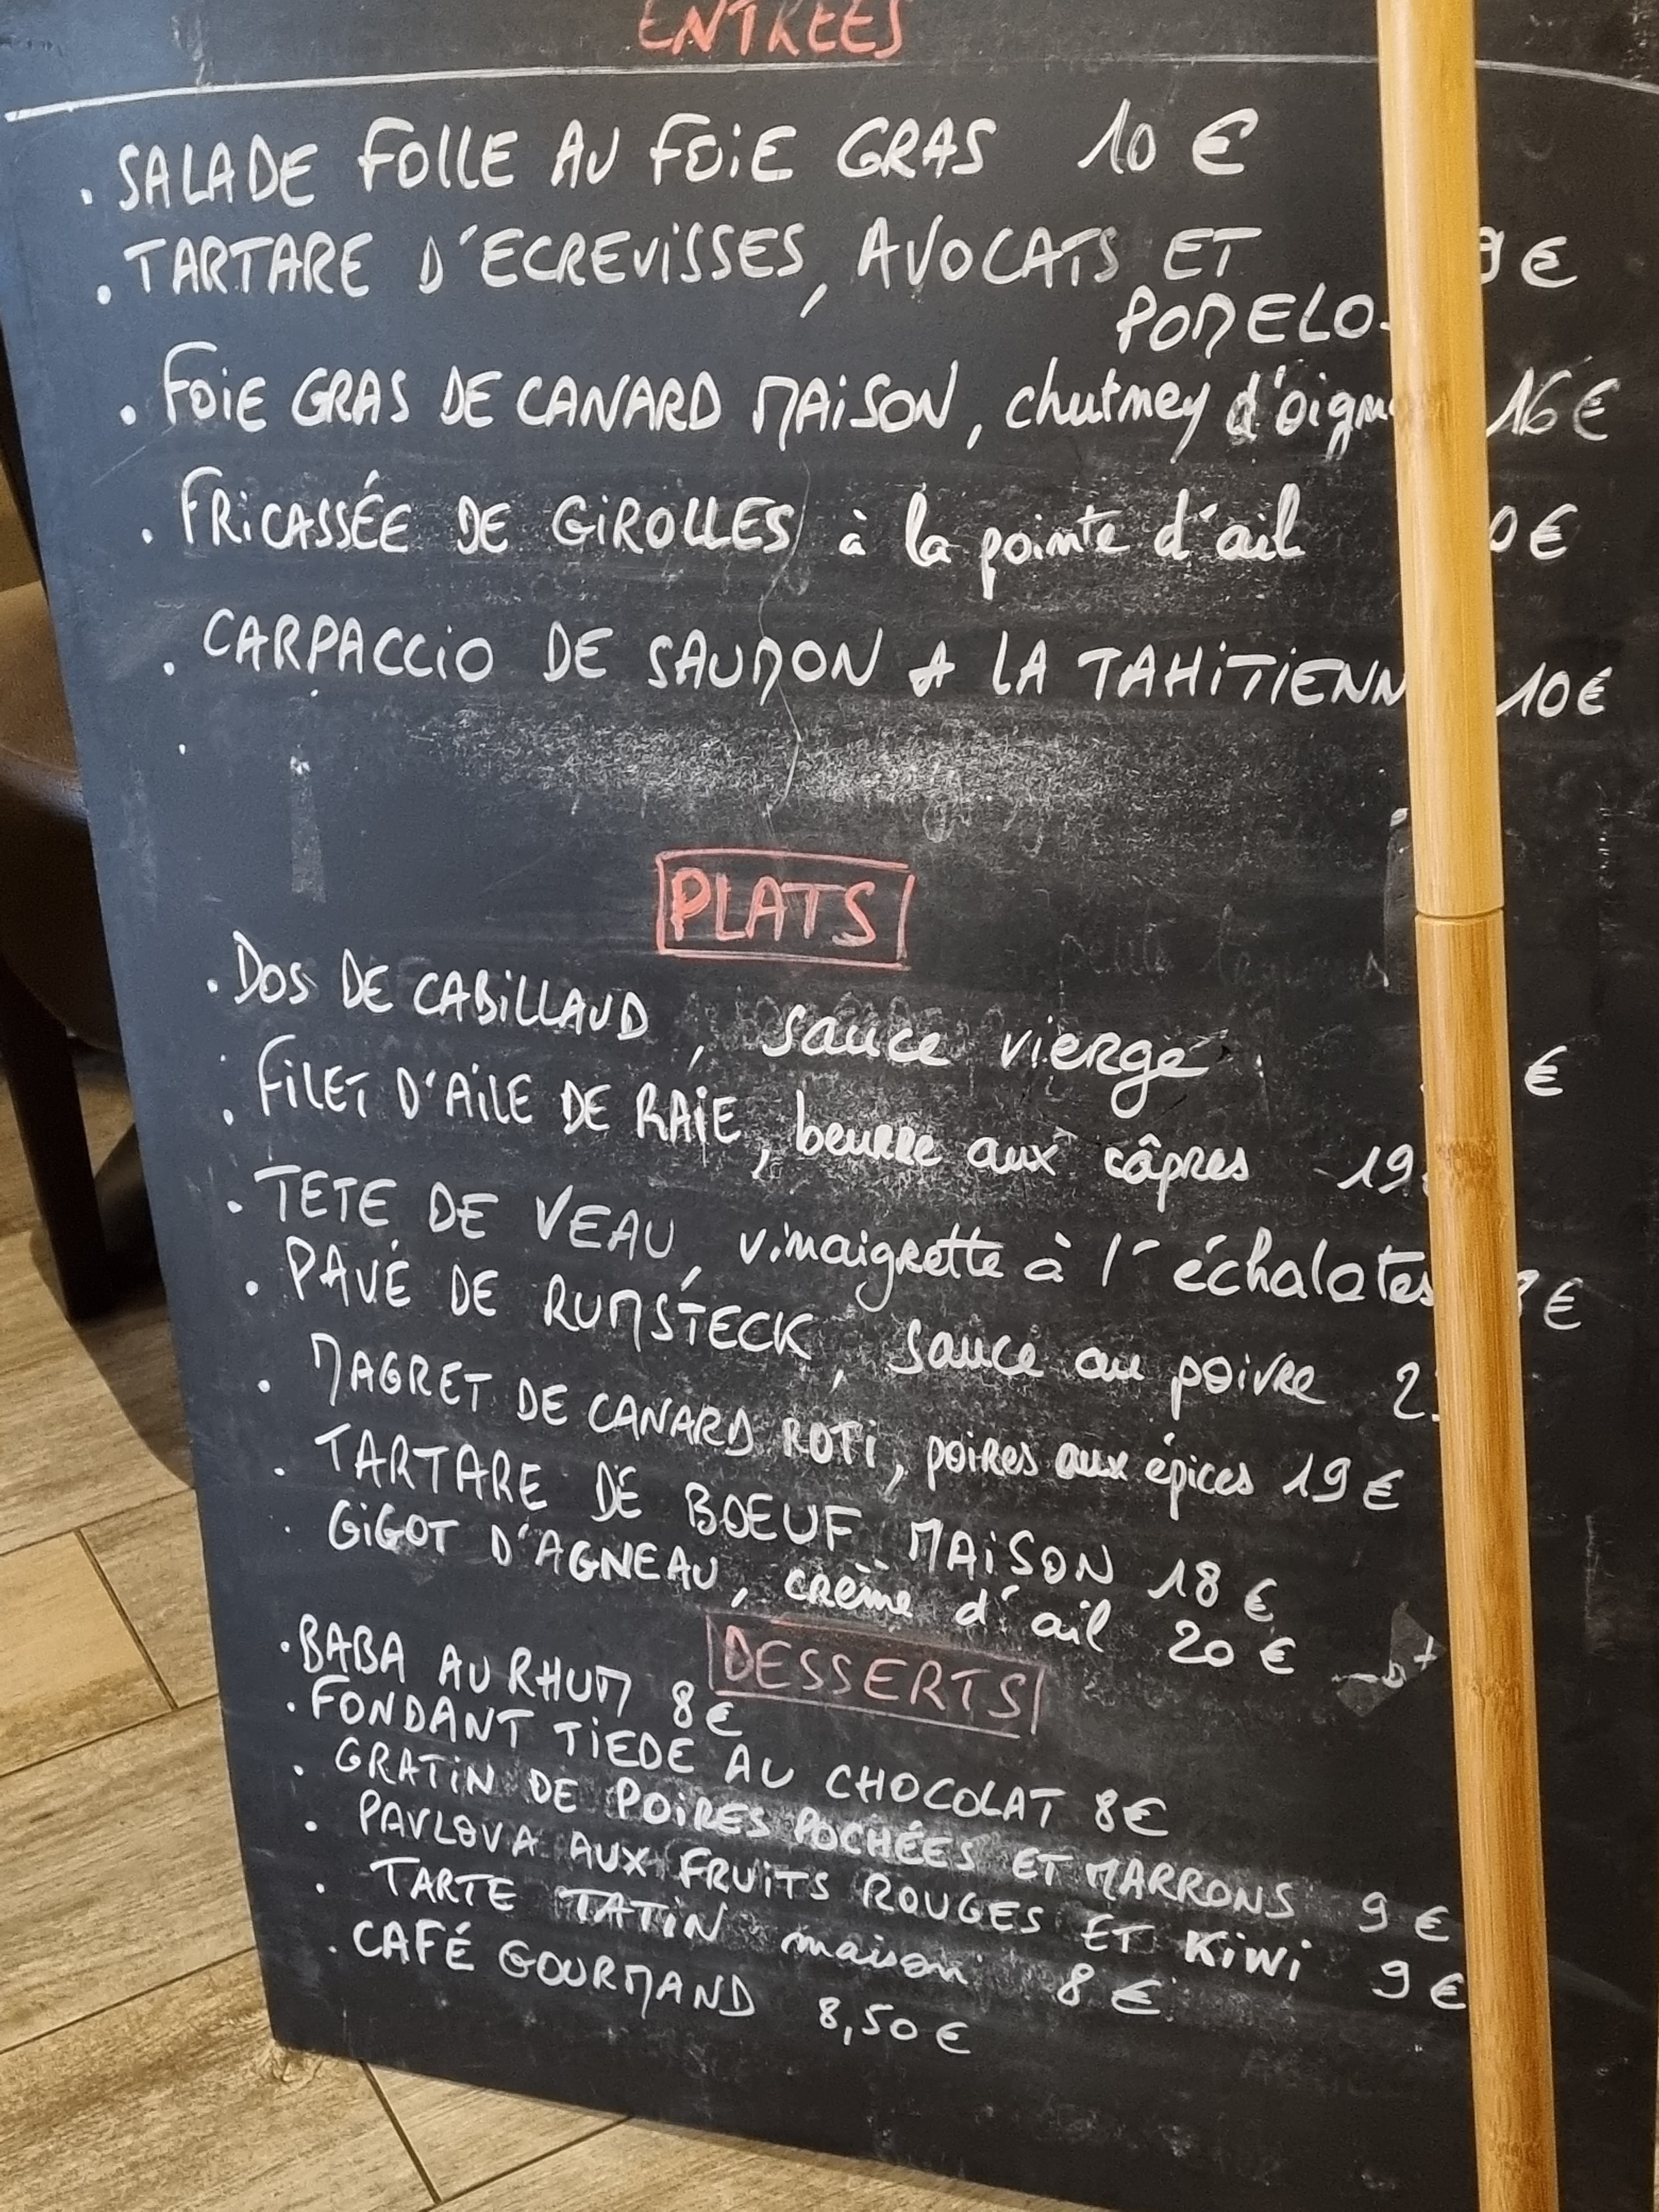 ENTREES
. SALADE FOLLE AU FOIE GRAS 10 €
. TARTARE D'ECREVISSES, AVOCATS ET 9 €
POMELO
. FOIE GRAS DE CANARD MAISON, chutney d'oign 16 €
. FRICASSÉE DE GIROLLES à la pointe d'ail 0 €
. CARPACCIO DE SAUMON A LA TAHITIENN 10 €
.
PLATS
. DOS DE CABILLAUD, sauce vierge €
. FILET D'AILE DE RAIE, beurre aux câpres 19
. TETE DE VEAU, vinaigrette à l'échalotes €
. PAVÉ DE RUMSTECK, sauce au poivre 2
. MAGRET DE CANARD ROTI, poires aux épices 19 €
. TARTARE DE BOEUF MAISON 18 €
. GIGOT D'AGNEAU, crème d'ail 20 €
DESSERTS
. BABA AU RHUM 8 €
. FONDANT TIEDE AU CHOCOLAT 8 €
. GRATIN DE POIRES POCHÉES ET MARRONS 9 €
. PAVLOVA AUX FRUITS ROUGES ET KIWI 9 €
. TARTE TATIN maison 8 €
. CAFÉ GOURMAND 8,50 €